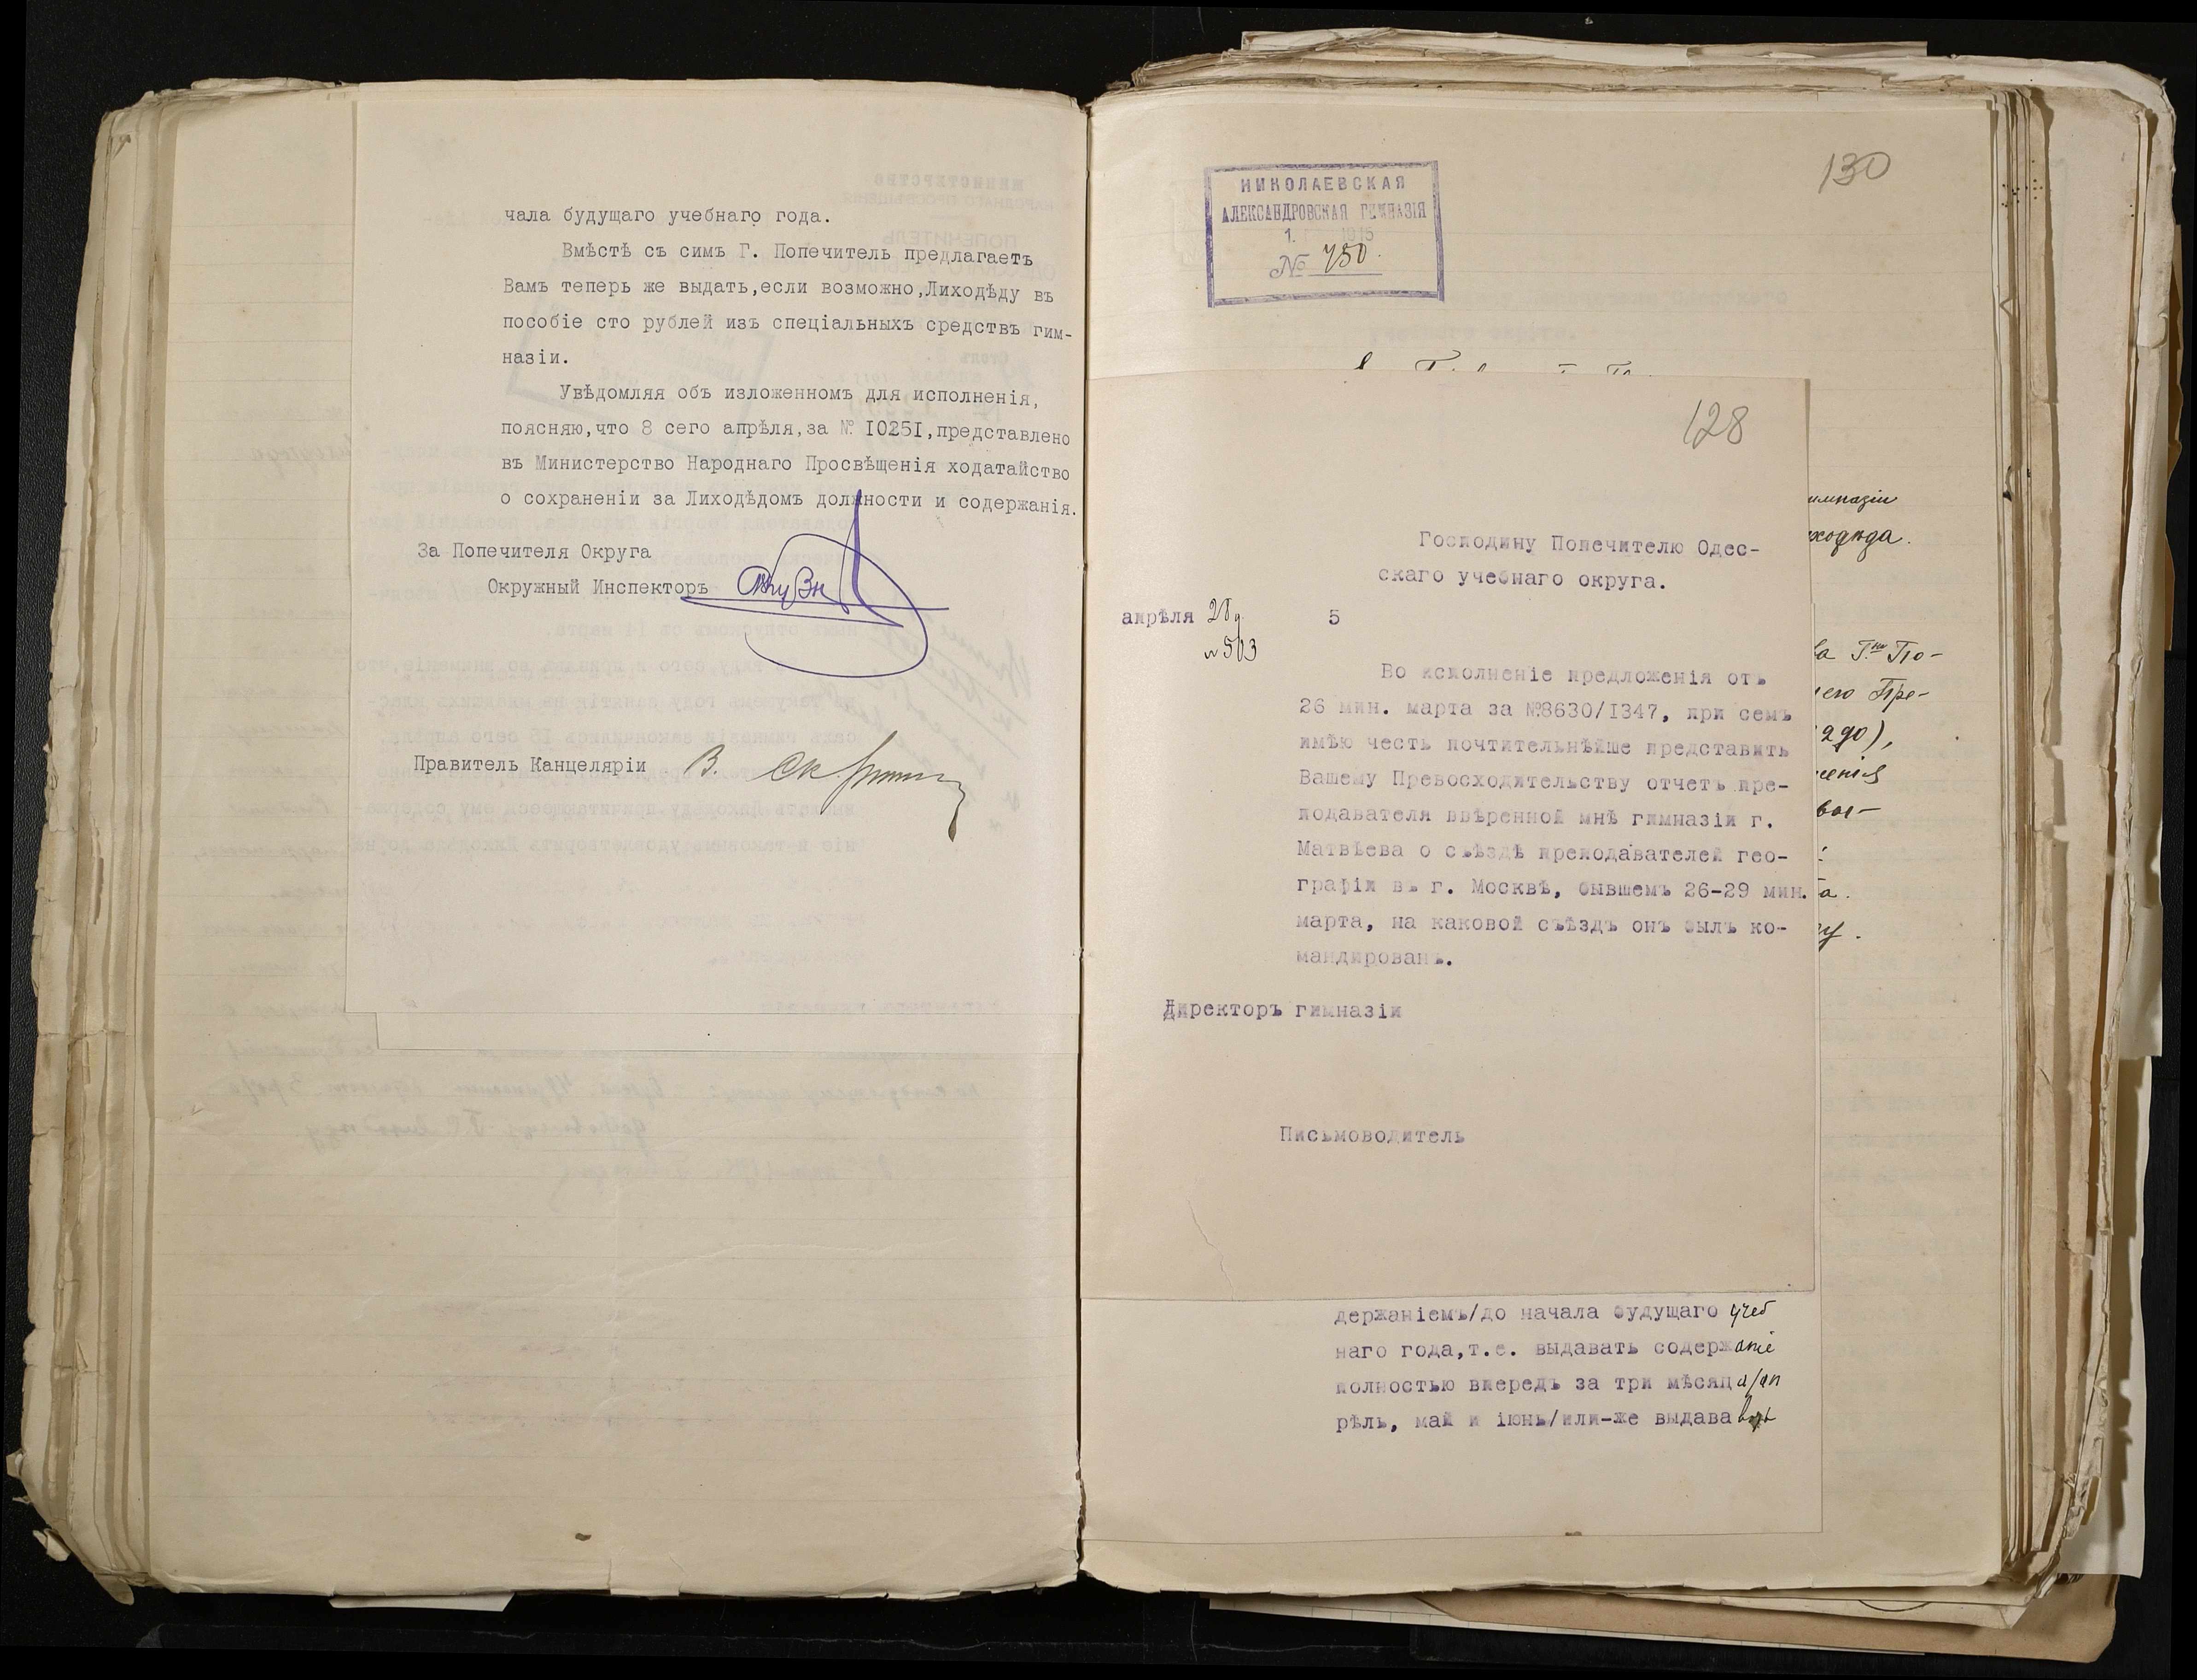 чала будущаго учебнаго года.
Вмѣстѣ съ симъ Г. Попечитель предлагаетъ
Вамъ теперь же выдать,если возможно,Лиходѣду въ
пособіе сто рублей изъ спеціальныхъ средствъ гим-
назіи.
Увѣдомляя объ изложенномъ для исполненія,
поясняю,что 8 сего апрѣля,за № I025I,представлено
въ Министерство Народнаго Просвѣщенія ходатайство
о сохраненіи за Лиходѣдомъ должности и содержанія.
За Попечителя Округа
Окружный Инспекторъ
Правитель Канцеляріи В.
130
НИКОЛАЕВСКАЯ
АЛЕКСАНДРОВСКАЯ ГИМНАЗІЯ
№ 750.
128
Господину Попечителю Одес-
скаго учебнаго округа.
апрѣля 28 5
№ 503
Во исполненіе предложенія отъ
26 мин. марта за №8630/I347, при семъ
имѣю честь почтительнѣйше представить
Вашему Превосходительству отчетъ пре-
подавателя ввѣренной мнѣ гимназіи г.
Матвѣева о съѣздѣ преподавателей гео-
графіи въ г. Москвѣ, бывшемъ 26-29 мин.
марта, на каковой съѣздъ онъ былъ ко-
мандированъ.
Директоръ гимназіи
Письмоводитель
имназіи
иходѣда.
ва Г.на По-
его Пре-
290),
ченія
вос-
та.
ву.
держаніемъ/до начала будущаго учеб
наго года,т.е. выдавать содержаніе
полностью впередъ за три мѣсяца/ап
рѣль, май и іюнь/или-же выдавать